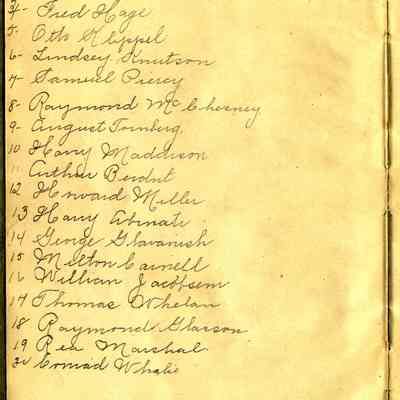 4- Fred Hage
5- Otto Klippel
6- Lindsey Knutson
7- Samuel Piercy
8- Raymond McChesney
9- August Tornberg.
10 Harry Maddison
11 Arthur Berdut
12 Howard Miller
13 Harry Abinati
14 George Glavanish
15 Milton Carnell
16 William Jacobsen
17 Thomas Whelan
18 Raymond Glasson
19 Rea Marshal
20 Conrad